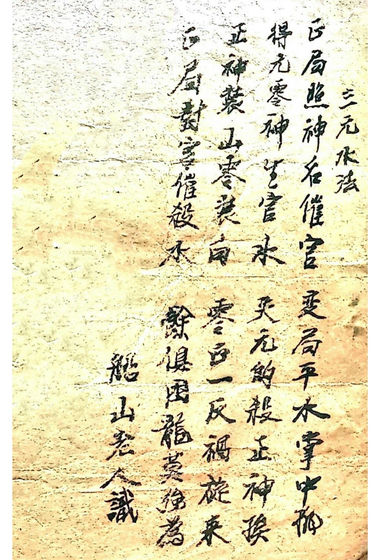 三元水法
正局照神名催官 变局平水掌中
得元零神生官水 失元的殺正神
正神裝山零裝向 零正一反禍旋来
正局對宫催殺水 餘俱因龍莫強為
山老人識